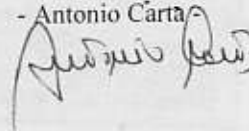 - Antonio Carta -
Antonio Carta